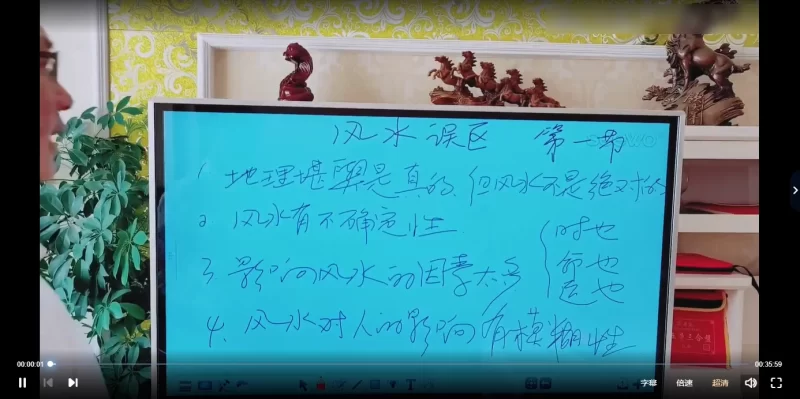 风水误区 第一节
1. 地理堪舆是真的，但风水不是绝对的
2 风水有不确定性
3. 影响风水的因素太多
时也
命也
运也
4. 风水对人的影响有模糊性
00:00:01
00:35:59
字幕 倍速 超清